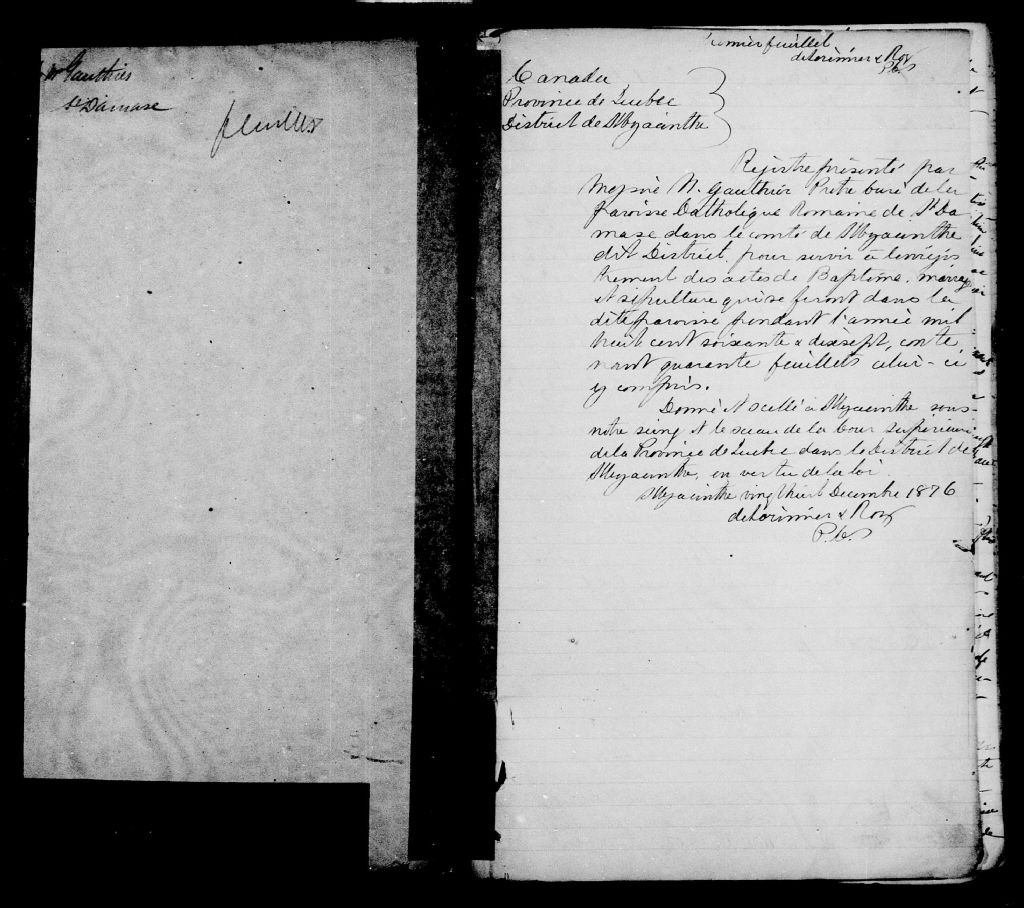 Mr Gauthier
St Damase
feuillet
premier feuillet
deLorimier & Roy
P.C.S
Canada
Province de Quebec
District de St Hyacinthe
Registre présenté par
Messire N. Gauthier Prêtre Curé de la
Paroisse Catholique Romaine de St Da
mase dans le comté de St Hyacinthe
dit District, pour servir à l'enrégis
trement des actes de Baptême, mariage
et sépulture qui se feront dans la
dite paroisse pendant l'année mil
huit cent soixante & dixsept, conte
nant quarante feuillets celui-ci
y compris.
Donné et scellé à St Hyacinthe sous
notre seing et le sceau de la Cour Supérieure
de la Province de Quebec dans le District de
St Hyacinthe, en vertu de la loi.
St Hyacinthe vingt huit Decembre 1876
deLorimier & Roy
P.C.S